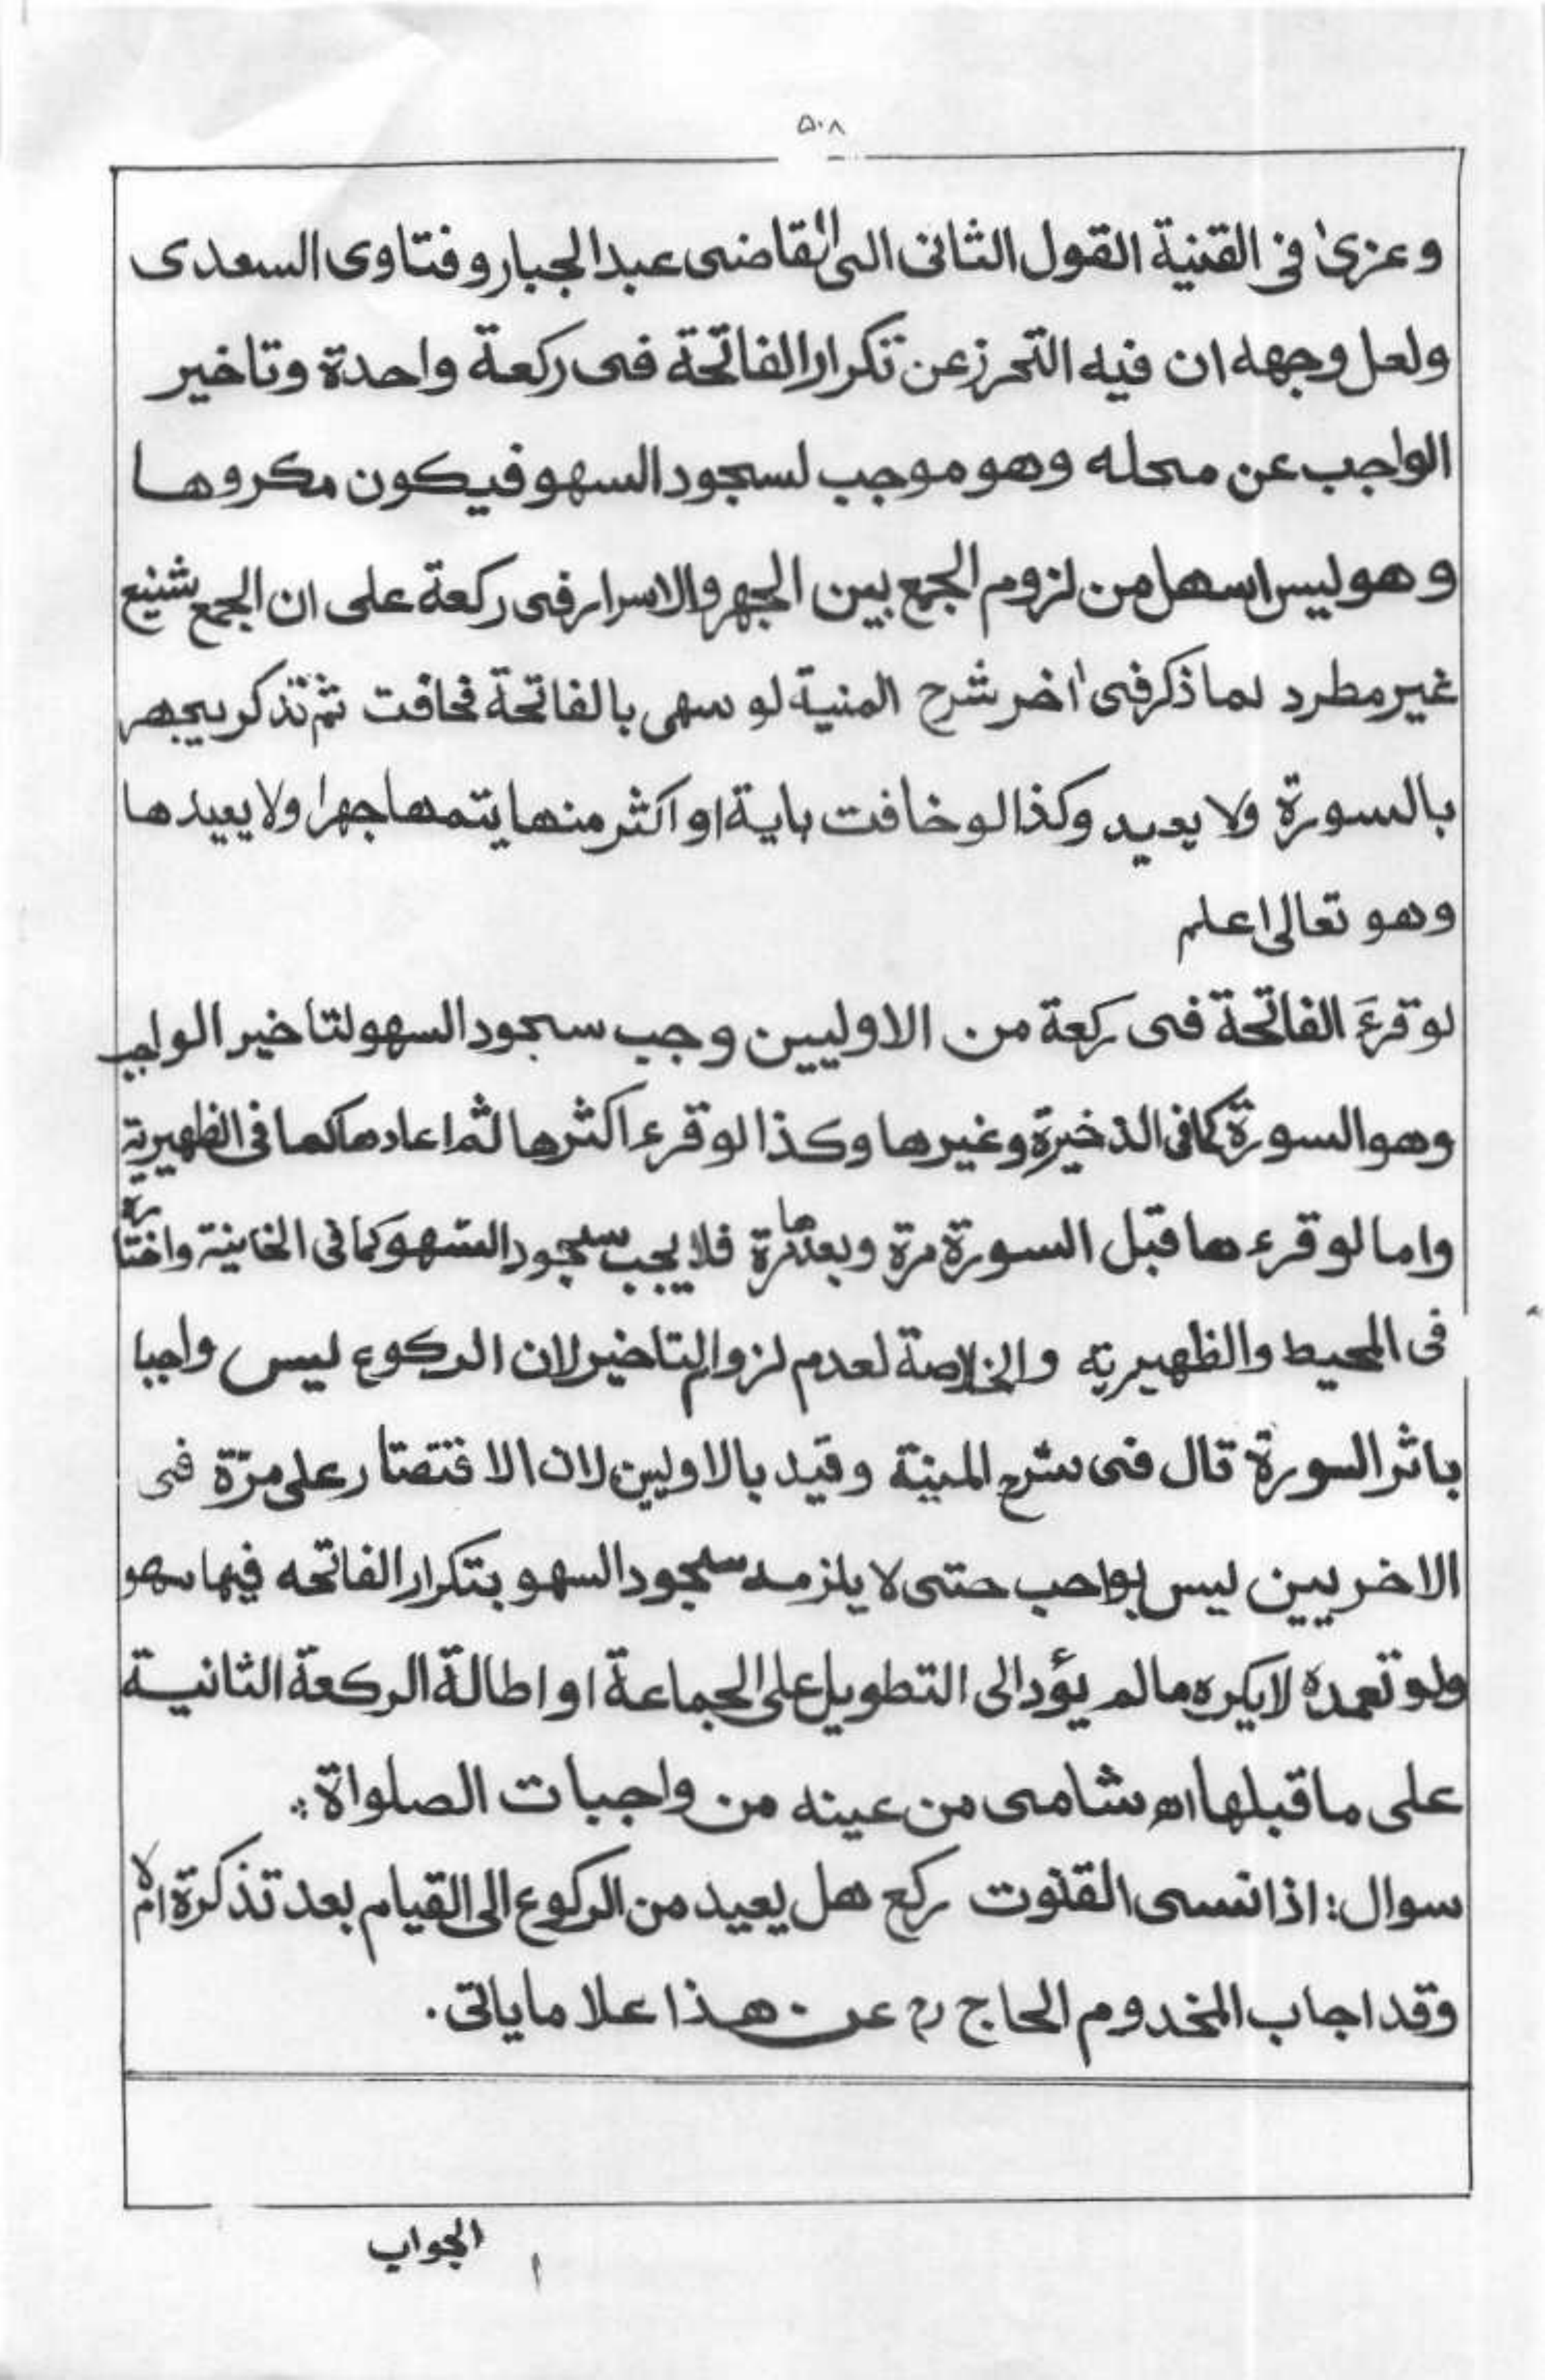 ۵۰۸
وعزیٰ فی القنیة القول الثانی الی القاضی عبد الجبار و فتاوی السعدی
ولعل وجهه ان فیه التحرز عن تکرار الفاتحة فی رکعة واحدة وتاخیر
الواجب عن محله وهو موجب لسجود السهو فیکون مکروها
وهو لیس اسهل من لزوم الجمع بین الجهر والاسرار فی رکعة علی ان الجمع شنیع
غیر مطرد لما ذکر فی اٰخر شرح المنیة لو سهی بالفاتحة فخافت ثم تذکر یجهر
بالسورة ولا یعید وکذا لو خافت بایة او اکثر منها یتمها جهرا ولا یعیدها
وهو تعالی اعلم
لو قرءَ الفاتحة فی رکعة من الاولیین وجب سجود السهو لتاخیر الواجب
وهو السورة کما فی الذخیرة وغیرها وکذا لو قرء اکثرها ثم اعادها کما فی الظهیریة
واما لو قرءها قبل السورة مرة وبعدها مرة فلا یجب سجود السهو کما فی الخانیة واختاره
فی المحیط والظهیریة والخلاصة لعدم لزوم التاخیر لان الرکوع لیس واجبا
باثر السورة قال فی شرح المنیة وقید بالاولیین لان الاقتصار علی مرّة فی
الاخریین لیس بواجب حتی لا یلزمه سجود السهو بتکرار الفاتحه فیها سهو
ولو تعمده لا یکره مالم یؤد الی التطویل علی الجماعة او اطالة الرکعة الثانیة
علی ما قبلها اه شامی من عینه من واجبات الصلواة
سوال: اذا نسی القنوت رکع هل یعید من الرکوع الی القیام بعد تذکرة ام لا
وقد اجاب المخدوم الحاج رح عن هذا علا ما یاتی.
الجواب